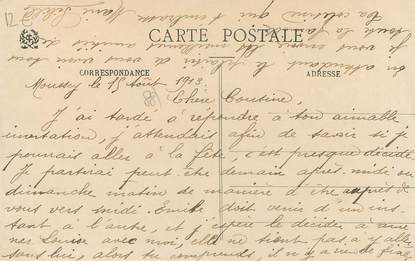 12
CARTE POSTALE
CORRESPONDANCE
ADRESSE
Moussey le 15 Août 1913
Chère Cousine,
J'ai tardé à répondre à ton aimable
invitation, j'attendais afin de savoir si je
pourrais aller à la fête, c'est presque décidé
Je partirai peut être demain après midi ou
dimanche matin de manière à être auprès de
vous vers midi. Emile doit venir d'un ins-
tant à l'autre, et j'espère le décider à ame
ner Louise avec moi, elle ne tient pas à y aller
sans lui, alors tu comprends, il n'y a rien de
en attendant le plaisir de vous voir tous
je vous envoie mes meilleures amitiés
La cousine qui t'embrasse